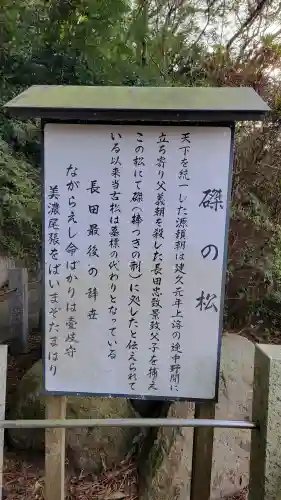 磔の松
天下を統一した源頼朝は建久元年上洛の途中野間に
立ち寄り父義朝を殺した長田忠致景致父子を捕え
この松にて磔（棒つきの刑）に処したと伝えられて
いる以来当古松は墓標の代わりとなっている
長田最後の辞世
ながらえし命ばかりは壹岐守
美濃尾張をばいまぞたまはり